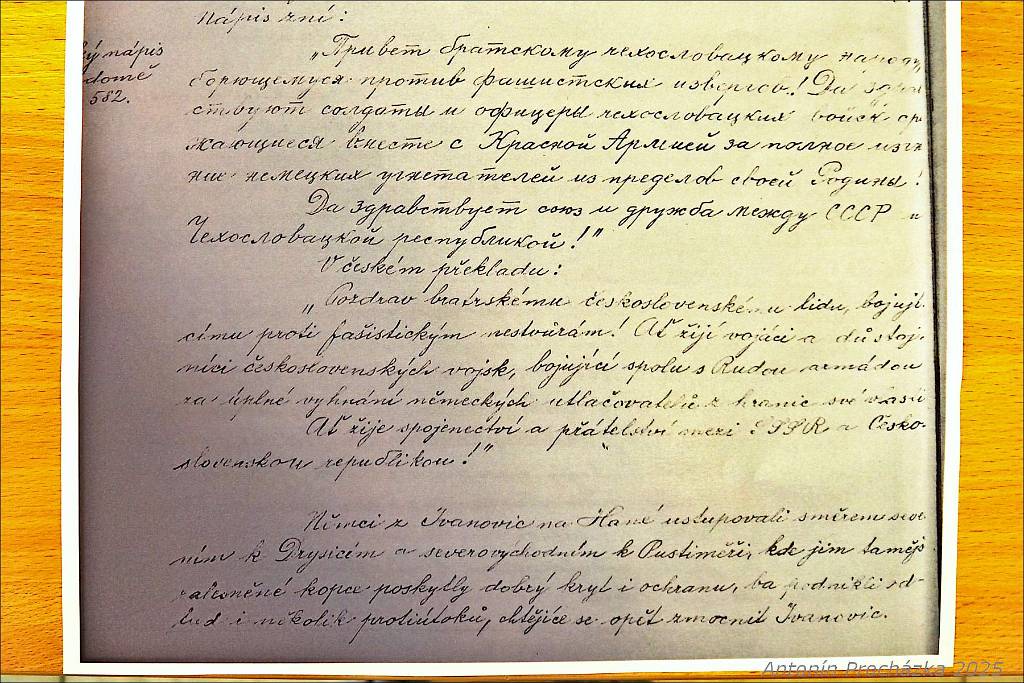 Nápis zní:
ý nápis
domě
582.
„Привет братскому чехословацкому народу,
борющемуся против фашистских извергов! Да здра
ствуют солдаты и офицеры чехословацких войск ср
жающиеся вместе с Красной Армией за полное изгн
ние немецких угнетателей из пределов своей Родины!
Да здравствует союз и дружба между СССР и
Чехословацкой республикой!"
V českém překladu:
„Pozdrav bratrskému československému lidu, bojují-
címu proti fašistickým nestvůrám! Ať žijí vojáci a důstoj-
níci československých vojsk, bojující spolu s Rudou armádou
za úplné vyhnání německých utlačovatelů z hranic své vlasti
Ať žije spojenectví a přátelství mezi SSSR a Česko-
slovenskou republikou!"
Němci z Ivanovic na Hané ustupovali směrem seve
ním k Drysicím a severovýchodním k Pustiměři, kde jim tamějš
zalesněné kopce poskytly dobrý kryt i ochranu, ba podnikli od-
tud i několik protiútoků, chtějíce se opět zmocnit Ivanovic.
Antonín Procházka 2025